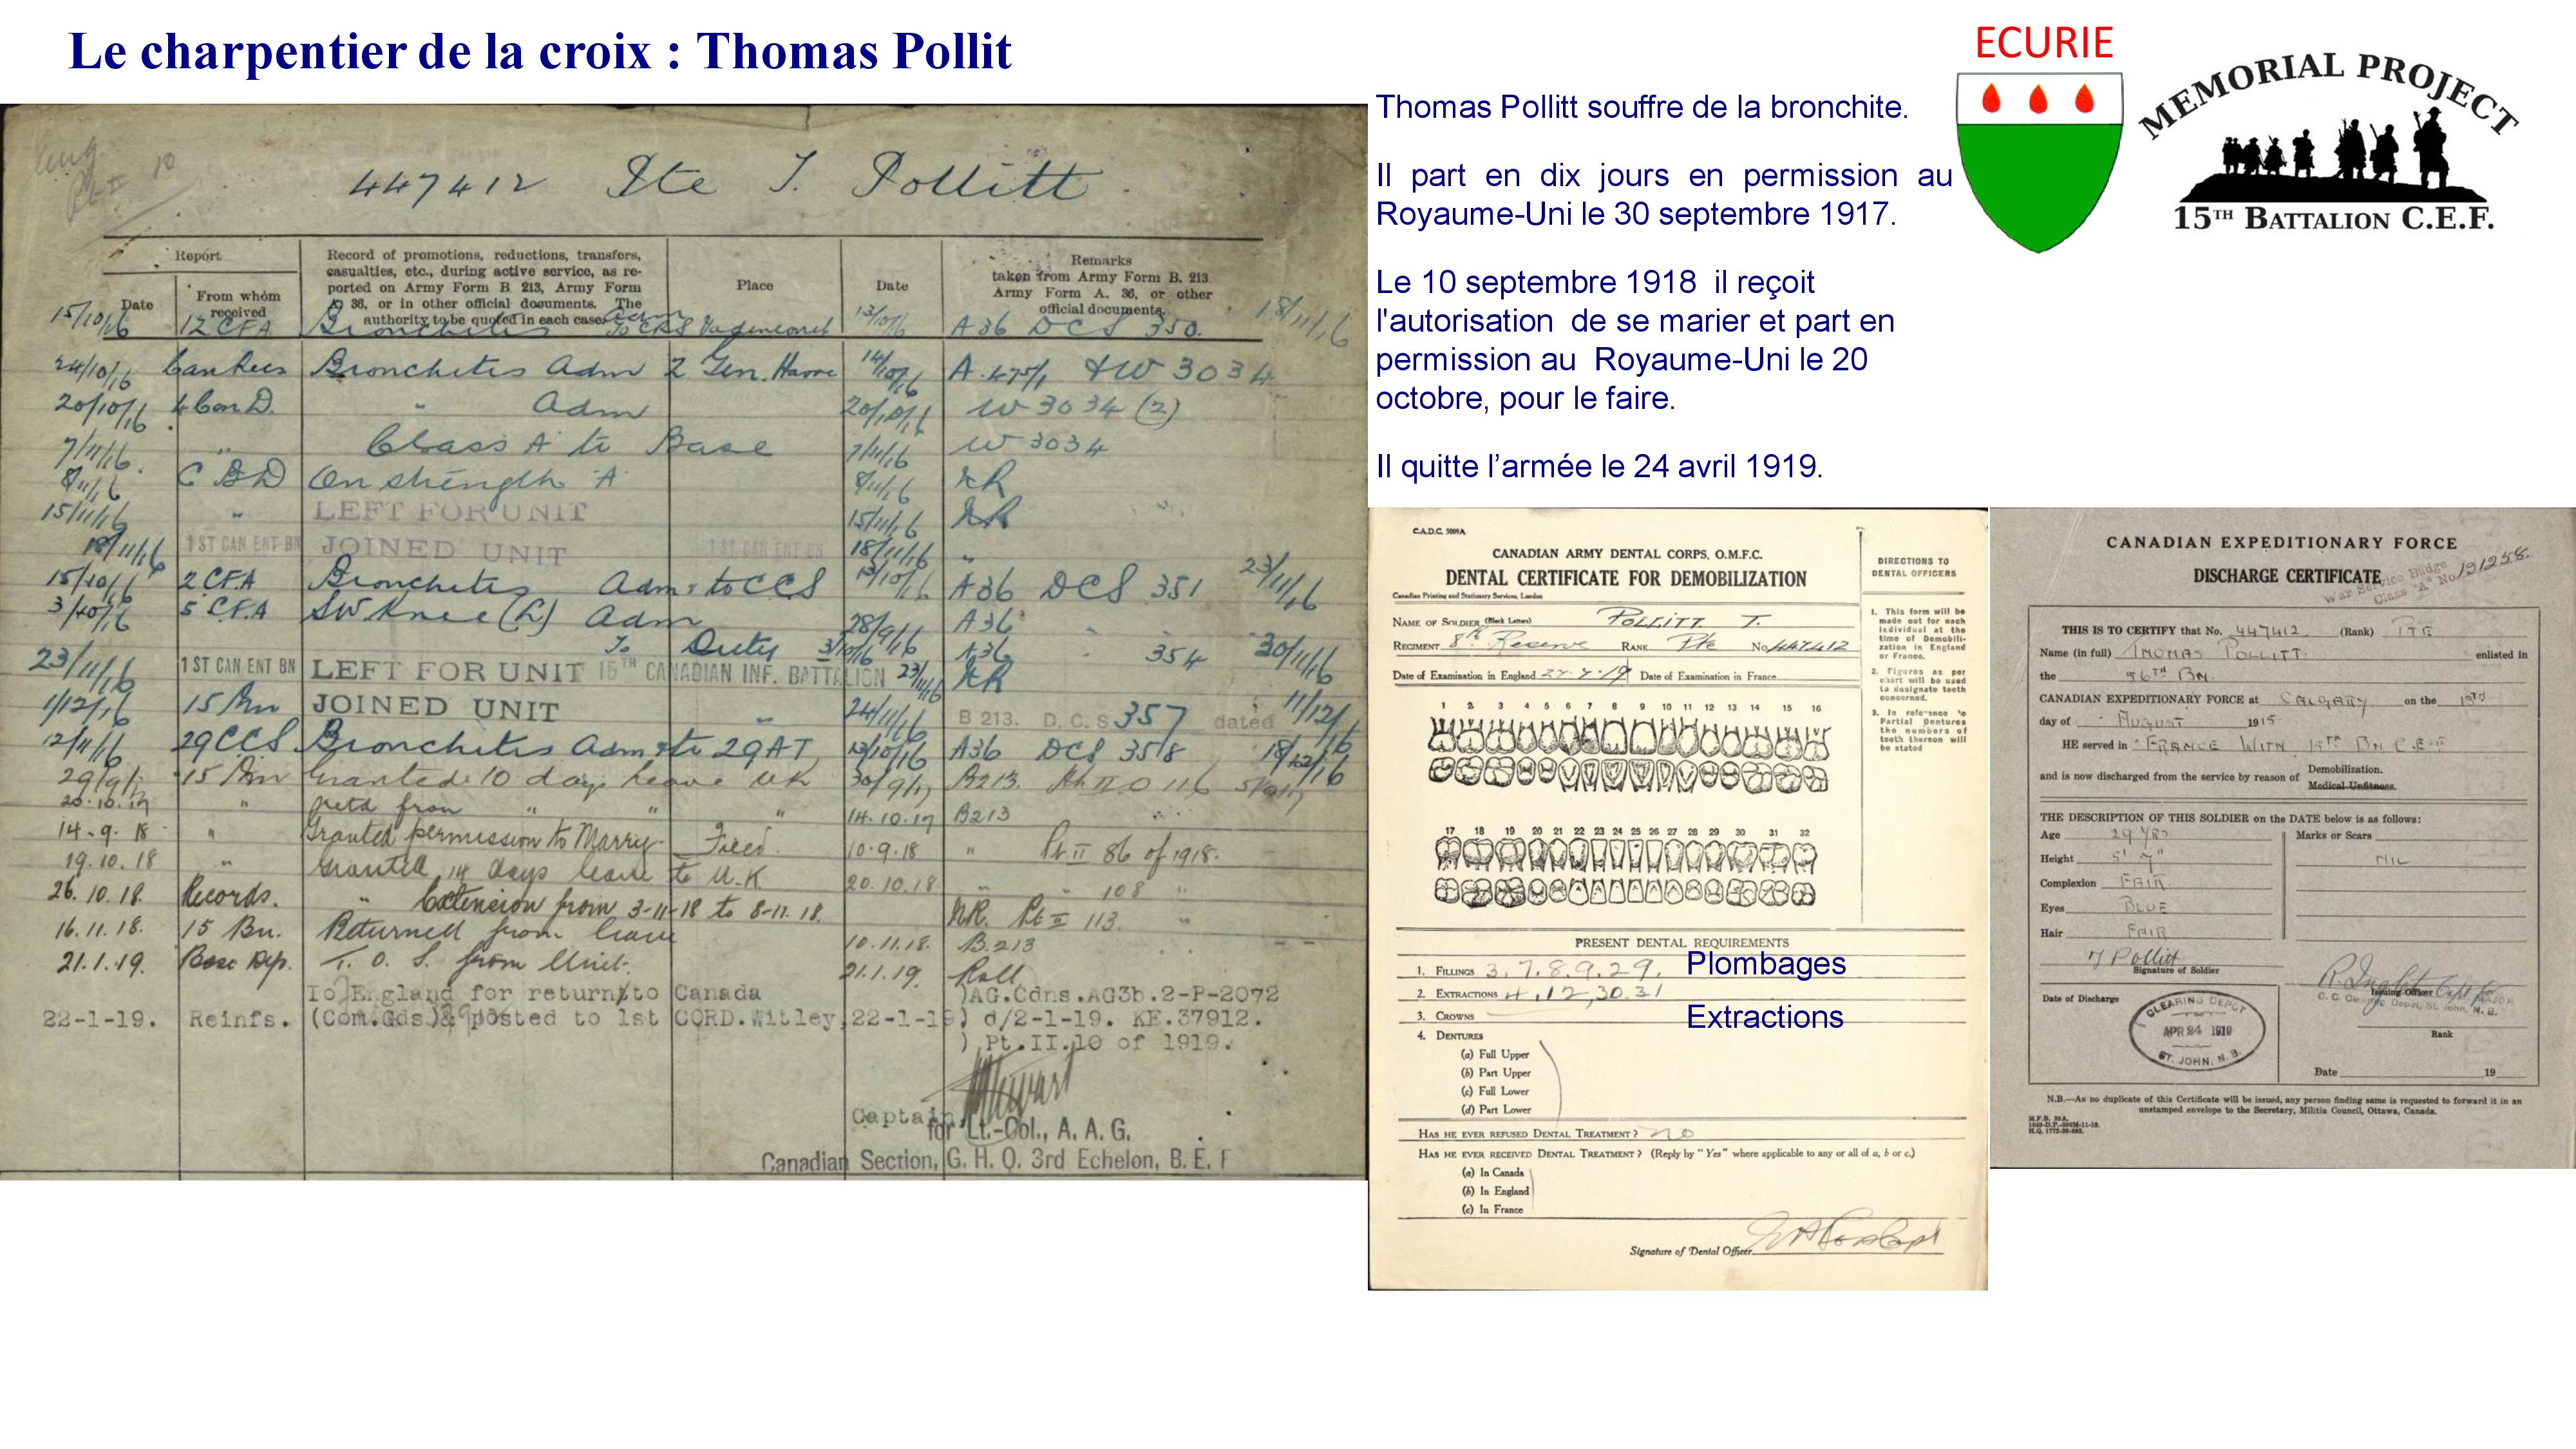 Le charpentier de la croix : Thomas Pollit
ECURIE
MEMORIAL PROJECT
15TH BATTALION C.E.F.
Thomas Pollitt souffre de la bronchite.
Il part en dix jours en permission au
Royaume-Uni le 30 septembre 1917.
Le 10 septembre 1918 il reçoit
l'autorisation de se marier et part en
permission au Royaume-Uni le 20
octobre, pour le faire.
Il quitte l’armée le 24 avril 1919.
447412 Pte T. Pollitt
Report
Date
From whom
received
Record of promotions, reductions, transfers,
casualties, etc., during active service, as re-
ported on Army Form B. 213, Army Form
A. 36, or in other official documents. The
authority to be quoted in each case.
Place
Date
Remarks
taken from Army Form B. 213,
Army Form A. 36, or other
official documents.
15/10/16 12 CFA Bronchitis Adm To CRS 13/10/16 A36 DCS 350. 18/11/16
24/10/16 Bronchitis Adm 2 Gen. Havre 14/10/16 W 3034
20/10/16 4 Con D. " Adm 20/10/16 W 3034 (2)
7/11/16 " Class A to Base 7/11/16 W 3034
8/11/16 C B D On strength A 8/11/16 NR
15/11/16 " LEFT FOR UNIT 15/11/16 NR
18/11/16 1ST CAN ENT BN JOINED UNIT 1ST CAN ENT BN 18/11/16 "
15/10/16 2 CFA Bronchitis Adm to CCS 13/10/16 A36 DCS 351 23/11/16
3/10/16 5 CFA SW Knee (L) Adm 28/9/16 A36
To Duty 3/10/16 A36 354 30/11/16
23/11/16 1ST CAN ENT BN LEFT FOR UNIT 15TH CANADIAN INF. BATTALION 23/11/16 NR
1/12/16 15 Bn JOINED UNIT " 24/11/16 B 213. D.C.S 357 dated 11/12/16
12/11/16 29 CCS Bronchitis Adm to 29 AT 13/10/16 A36 DCS 358 18/12/16
29/9/17 15 Bn Granted 10 days leave UK 30/9/17 B213. Pt II O 116
20.10.17 " Retd from " " " 14.10.17 B213
14-9-18 " Granted permission to Marry Field 10-9-18 " Pt II 86 of 1918.
19.10.18 " Granted 14 days leave to U.K 20.10.18 " " 108 "
26.10.18. Records. " Extension from 3-11-18 to 8-11.18. NR. Pt II 113. "
16.11.18. 15 Bn. Returned from leave 10.11.18. B.213
21.1.19. Base Dep. T.O.S. from Unit. 21.1.19. Roll
To England for return to Canada )AG.Cdns.AG3b.2-P-2072
22-1-19. Reinfs. (Com.Gds.) posted to 1st CORD.Witley, 22-1-19) d/2-1-19. KE.37912.
) Pt.II.10 of 1919.
Captain
for Lt.-Col., A. A. G.
Canadian Section, G. H. Q. 3rd Echelon, B. E. F
C.A.D.C. 5009A
CANADIAN ARMY DENTAL CORPS, O.M.F.C.
DENTAL CERTIFICATE FOR DEMOBILIZATION
Canadian Printing and Stationery Services, London
NAME OF SOLDIER (Block Letters) POLLITT. T.
REGIMENT 8th Reserve RANK Pte No 447412
Date of Examination in England Date of Examination in France
1 2 3 4 5 6 7 8 9 10 11 12 13 14 15 16
17 18 19 20 21 22 23 24 25 26 27 28 29 30 31 32
DIRECTIONS TO
DENTAL OFFICERS
1. This form will be
made out for each
individual at the
time of Demobili-
zation in England
or France.
2. Figures as per
chart will be used
to designate teeth
concerned.
3. In reference to
Partial Dentures
the numbers of
teeth thereon will
be stated
PRESENT DENTAL REQUIREMENTS
1. FILLINGS 3, 7, 8, 9, 29. Plombages
2. EXTRACTIONS 4, 12, 30, 31
3. CROWNS Extractions
4. DENTURES
(a) Full Upper
(b) Part Upper
(c) Full Lower
(d) Part Lower
HAS HE EVER REFUSED DENTAL TREATMENT? no
HAS HE EVER RECEIVED DENTAL TREATMENT? (Reply by "Yes" where applicable to any or all of a, b or c.)
(a) In Canada
(b) In England
(c) In France
Signature of Dental Officer
CANADIAN EXPEDITIONARY FORCE
DISCHARGE CERTIFICATE
War Service Badge
Class "A" No 191258.
THIS IS TO CERTIFY that No. 447412 (Rank) PTE
Name (in full) THOMAS POLLITT. enlisted in
the 56TH BN.
CANADIAN EXPEDITIONARY FORCE at CALGARY on the 19TH
day of AUGUST 1915
HE served in FRANCE WITH 15TH BN C.E.F
and is now discharged from the service by reason of Demobilization.
Medical Unfitness.
THE DESCRIPTION OF THIS SOLDIER on the DATE below is as follows:
Age 29 YRS.
Marks or Scars
Height 5' 7"
NIL
Complexion FAIR
Eyes BLUE
Hair FAIR
T Pollitt
Signature of Soldier
Issuing Officer
Date of Discharge
CLEARING DEPOT
APR 24 1919
ST. JOHN, N. B.
Rank
Date 19
N.B.—As no duplicate of this Certificate will be issued, any person finding same is requested to forward it in an
unstamped envelope to the Secretary, Militia Council, Ottawa, Canada.